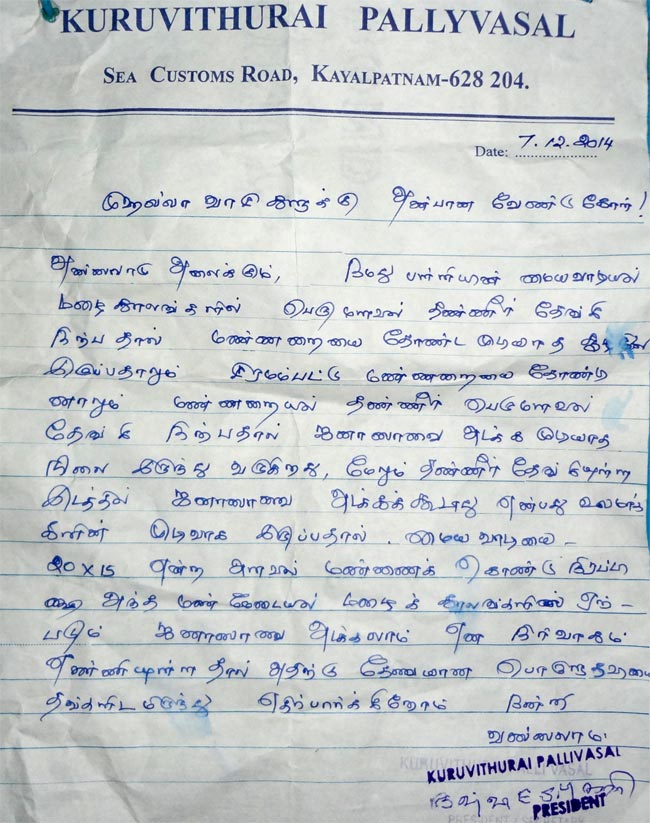 KURUVITHURAI PALLYVASAL
SEA CUSTOMS ROAD, KAYALPATNAM-628 204.
Date: 7.12.2014
முஹல்லா வாசிகளுக்கு அன்பான வேண்டுகோள்!
அஸ்ஸலாமு அலைக்கும், நமது பள்ளியின் மையவாடியில்
மழை காலங்களில் பெருமளவில் தண்ணீர் தேங்கி
நிற்பதால் மண்ணறையை தோண்ட முடியாத
இருப்பதாலும் சிரமப்பட்டு மண்ணறையை தோண்டி
னாலும் மண்ணறையில் தண்ணீர் பெருமளவில்
தேங்கி நிற்பதால் ஜனாஸாவை அடக்க முடியாத
நிலை இருந்து வருகிறது, மேலும் தண்ணீர் தேங்கியுள்ள
இடத்தில் ஜனாஸாவை அடக்கக்கூடாது என்பது உலமாக்
களின் முடிவாக இருப்பதால். மைய வாடியை -
20 X 15 என்ற அளவில் மண்ணைக் கொண்டு நிரப்பி
அந்த மண் மேடையில் மழைக் காலங்களில் ஏற் -
படும் ஜனாஸாவை அடக்கலாம் என நிர்வாகம்
எண்ணியுள்ளதால் அதற்கு தேவையான பொருளுதவியை
தங்களிடமிருந்து எதிர்பார்க்கிறோம் நன்றி
வஸ்ஸலாம்.
KURUVITHURAI PALLIVASAL
PRESIDENT